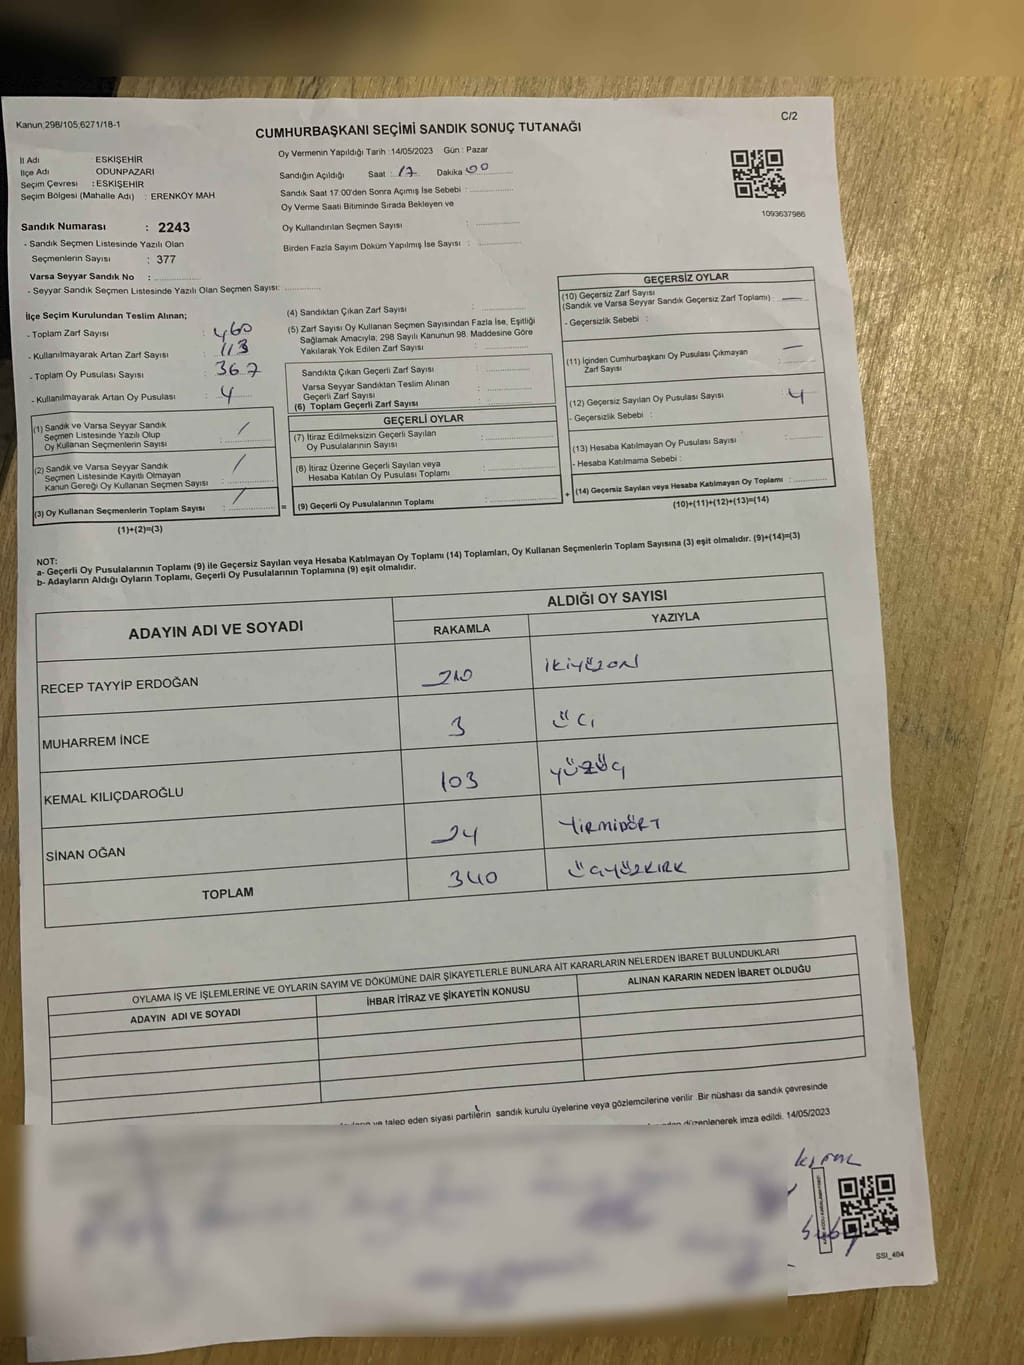 Kanun;298/105;6271/18-1
C/2
CUMHURBAŞKANI SEÇİMİ SANDIK SONUÇ TUTANAĞI
İl Adı : ESKİŞEHİR
İlçe Adı : ODUNPAZARI
Seçim Çevresi : ESKİŞEHİR
Seçim Bölgesi (Mahalle Adı) : ERENKÖY MAH
Oy Vermenin Yapıldığı Tarih :14/05/2023 Gün : Pazar
Sandığın Açıldığı Saat : 17 Dakika 00
Sandık Saat 17:00'den Sonra Açımış İse Sebebi :
Oy Verme Saati Bitiminde Sırada Bekleyen ve
Oy Kullandırılan Seçmen Sayısı :
Birden Fazla Sayım Döküm Yapılmış İse Sayısı :
1093637986
Sandık Numarası : 2243
- Sandık Seçmen Listesinde Yazılı Olan
Seçmenlerin Sayısı : 377
Varsa Seyyar Sandık No :
- Seyyar Sandık Seçmen Listesinde Yazılı Olan Seçmen Sayısı:
İlçe Seçim Kurulundan Teslim Alınan;
- Toplam Zarf Sayısı : 460
- Kullanılmayarak Artan Zarf Sayısı : 113
- Toplam Oy Pusulası Sayısı : 367
- Kullanılmayarak Artan Oy Pusulası : 4
(1) Sandık ve Varsa Seyyar Sandık
Seçmen Listesinde Yazılı Olup
Oy Kullanan Seçmenlerin Sayısı : /
(2) Sandık ve Varsa Seyyar Sandık
Seçmen Listesinde Kayıtlı Olmayan
Kanun Gereği Oy Kullanan Seçmen Sayısı : /
(3) Oy Kullanan Seçmenlerin Toplam Sayısı : /
(1)+(2)=(3)
(4) Sandıktan Çıkan Zarf Sayısı :
(5) Zarf Sayısı Oy Kullanan Seçmen Sayısından Fazla İse, Eşitliği
Sağlamak Amacıyla; 298 Sayılı Kanunun 98. Maddesine Göre
Yakılarak Yok Edilen Zarf Sayısı :
Sandıkta Çıkan Geçerli Zarf Sayısı :
Varsa Seyyar Sandıktan Teslim Alınan
Geçerli Zarf Sayısı :
(6) Toplam Geçerli Zarf Sayısı :
GEÇERLİ OYLAR
(7) İtiraz Edilmeksizin Geçerli Sayılan
Oy Pusulalarının Sayısı :
(8) İtiraz Üzerine Geçerli Sayılan veya
Hesaba Katılan Oy Pusulası Toplamı :
= (9) Geçerli Oy Pusulalarının Toplamı :
GEÇERSİZ OYLAR
(10) Geçersiz Zarf Sayısı
(Sandık ve Varsa Seyyar Sandık Geçersiz Zarf Toplamı) : —
- Geçersizlik Sebebi :
(11) İçinden Cumhurbaşkanı Oy Pusulası Çıkmayan
Zarf Sayısı : —
(12) Geçersiz Sayılan Oy Pusulası Sayısı : 4
- Geçersizlik Sebebi :
(13) Hesaba Katılmayan Oy Pusulası Sayısı :
- Hesaba Katılmama Sebebi :
+ (14) Geçersiz Sayılan veya Hesaba Katılmayan Oy Toplamı :
(10)+(11)+(12)+(13)=(14)
NOT:
a- Geçerli Oy Pusulalarının Toplamı (9) ile Geçersiz Sayılan veya Hesaba Katılmayan Oy Toplamı (14) Toplamları, Oy Kullanan Seçmenlerin Toplam Sayısına (3) eşit olmalıdır. (9)+(14)=(3)
b- Adayların Aldığı Oyların Toplamı, Geçerli Oy Pusulalarının Toplamına (9) eşit olmalıdır.
ADAYIN ADI VE SOYADI
ALDIĞI OY SAYISI
RAKAMLA YAZIYLA
RECEP TAYYİP ERDOĞAN 210 İKİYÜZON
MUHARREM İNCE 3 ÜÇ
KEMAL KILIÇDAROĞLU 103 YÜZÜÇ
SİNAN OĞAN 24 YİRMİDÖRT
TOPLAM 340 ÜÇYÜZKIRK
OYLAMA İŞ VE İŞLEMLERİNE VE OYLARIN SAYIM VE DÖKÜMÜNE DAİR ŞİKAYETLERLE BUNLARA AİT KARARLARIN NELERDEN İBARET BULUNDUKLARI
ADAYIN ADI VE SOYADI
İHBAR İTİRAZ VE ŞİKAYETİN KONUSU
ALINAN KARARIN NEDEN İBARET OLDUĞU
ve talep eden siyasi partilerin sandık kurulu üyelerine veya gözlemcilerine verilir .Bir nüshası da sandık çevresinde
düzenlenerek imza edildi. 14/05/2023
SSI_404